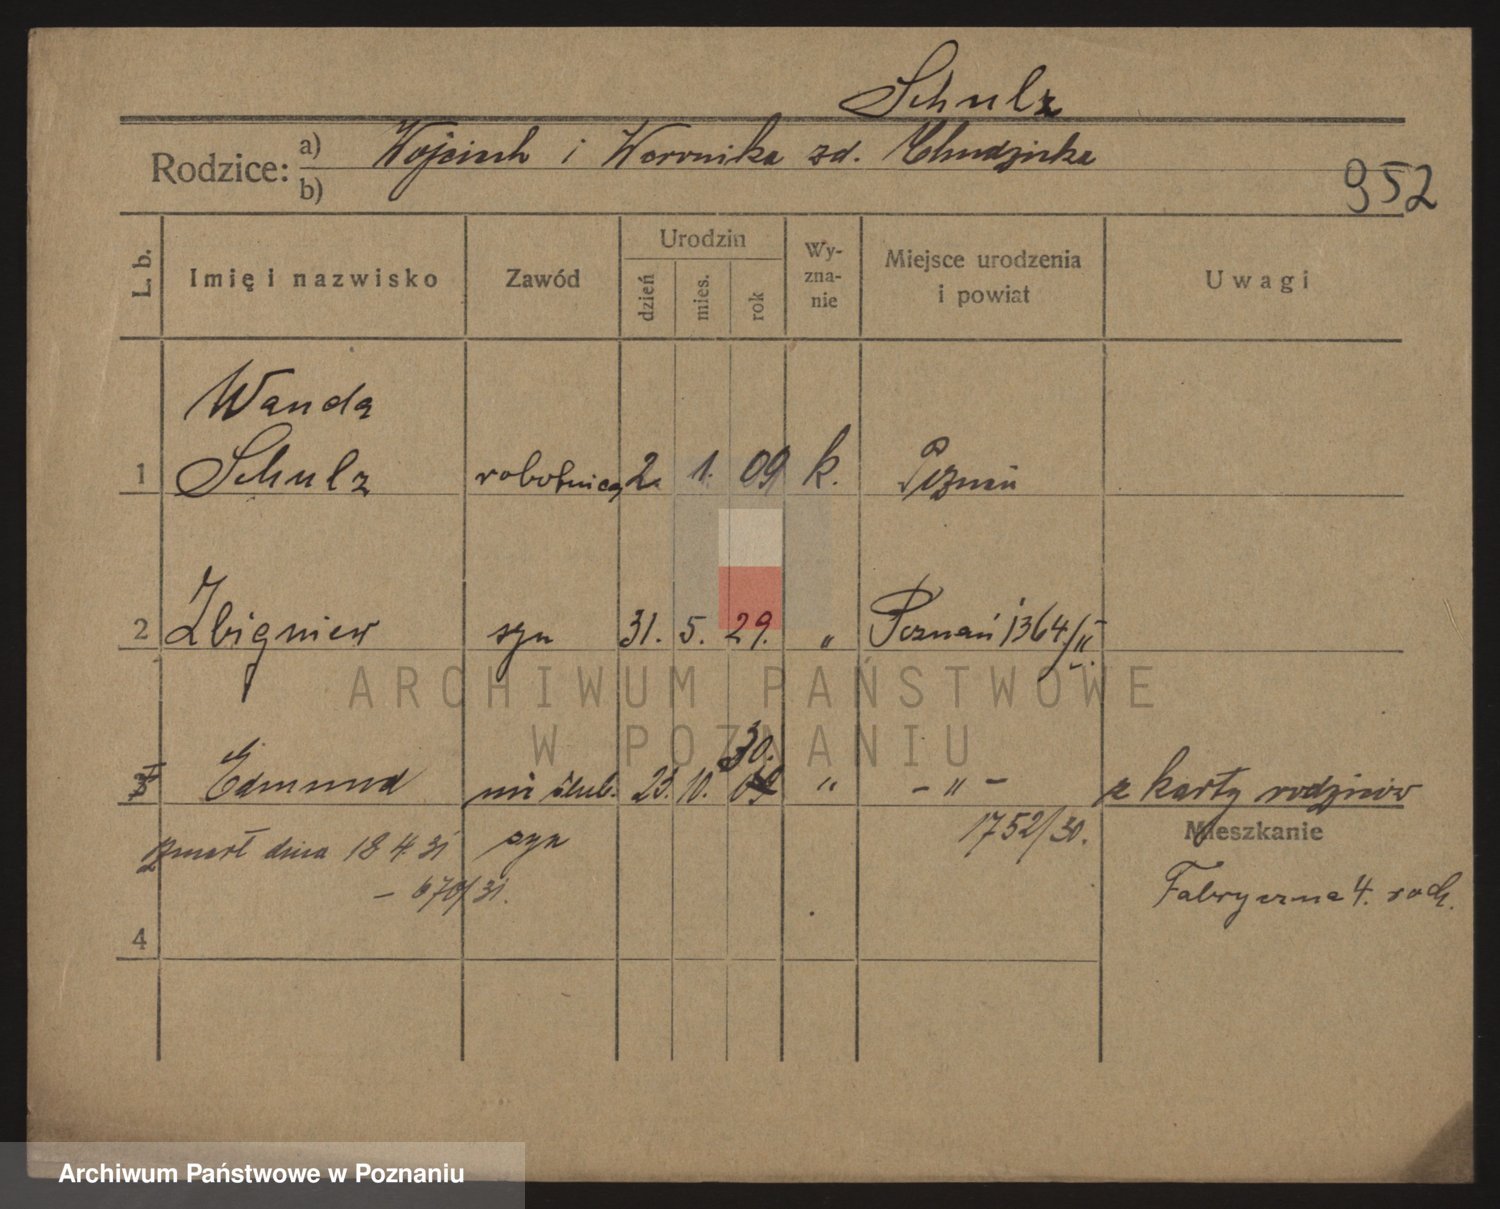 Schulz
Rodzice: a) Wojciech i Weronika zd. Chudzicka
b)
952
L. b. Imię i nazwisko Zawód Urodzin dzień mies. rok Wyznanie Miejsce urodzenia i powiat Uwagi
Wanda
1 Schulz robotnica 2. 1. 09 k. Poznań
2 Zbigniew syn 31. 5. 29. „ Poznań 1364/II
30.
3 Edmund nieślub. 23. 10. „ - „ - z karty rodziców
zmarł dnia 18 4. 31 syn 1752/30. Mieszkanie
- 670/31. Fabryczna 4.
4
ARCHIWUM PAŃSTWOWE
W POZNANIU
Archiwum Państwowe w Poznaniu